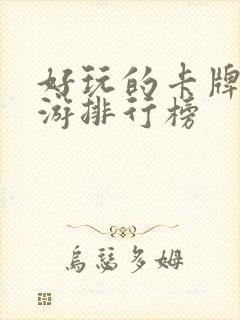 好玩的卡牌
游排行榜
乌瑟多姆